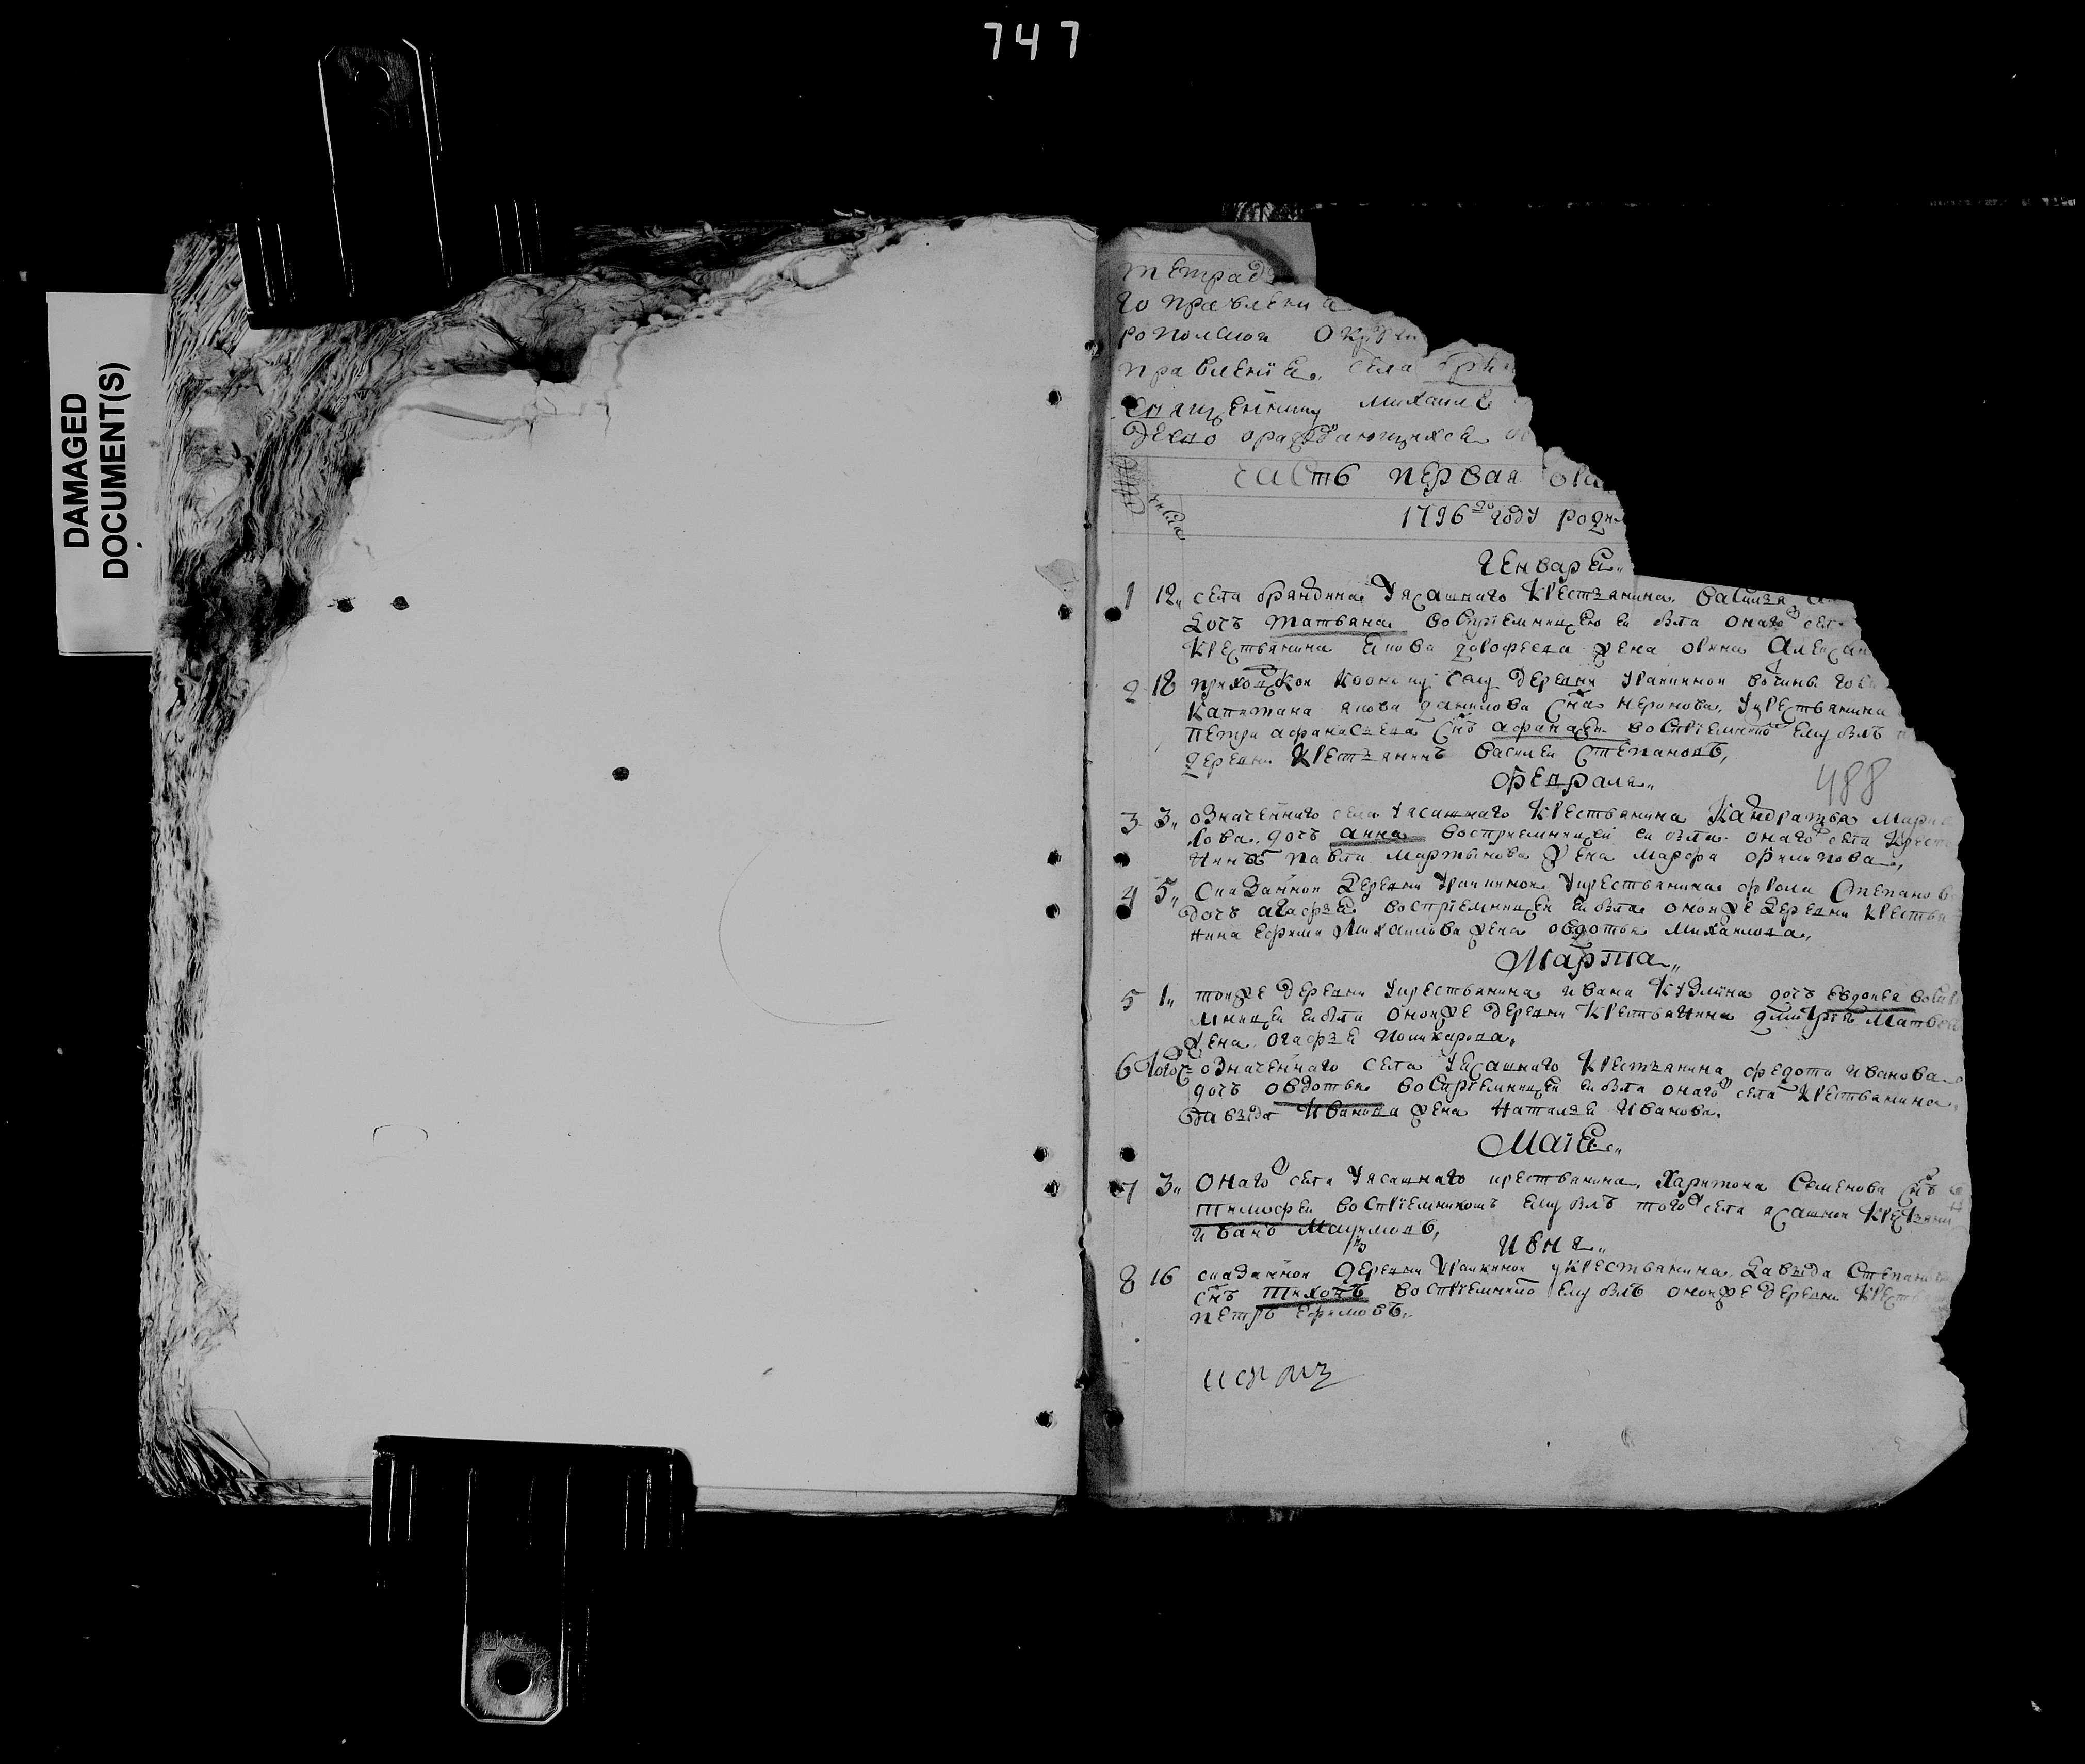 747
DAMAGED
DOCUMENT(S)
тетрад
го правления
рополской Окру
правление села бри
священнику михаиле
девно ораждающихся
часть первая ора
числа
1796го году роди
Генваря
1 12 села бряндина Уясашнаго крестьянина василья
дочь татьяна восприемницею ей была онаго сел
крестьянина якова дорофеева жена орина Алексан
2 18 приходской кооному селу деревни Урайкиной вотчины гос
капитана якова данилова сна неронова Укрестьянина
петра афанасьева снъ афанасей восприемнико ему былъ
деревни крестьянинъ василей степановъ
февраля
488
3 3 означеннаго села Уясашнаго крестьянина Кандратья Мари
лова дочь анна восприемницей ей была онаго села крест
нинъ павла мартынова жена марфа филипова
4 5 сказанной деревни Урайкиной Укрестьянина фрола Степанов
дочь агафья восприемницей ей была оной же деревни крестья
нина ефима михаилова жена овдотья михаилова
Марта
5 1 той же деревни Укрестьянина ивана кузмина дочь евдокея воспрі
мницей ей была оной же деревни крестьянина дмитрия Матвее
жена огафья поликарпова
6 того означеннаго села Уясашнаго крестьянина федота иванова
дочь овдотья восприемницей ей была онаго села крестьянина
давыда Иванова жена наталья Иванова
Маия
7 3 онаго села Уясашнаго крестьянина Харитона Семенова снъ
тимофей восприемникомъ ему былъ того села ясашной крестьяни
иванъ Максимовъ
июня
8 16 сказанной деревни Урайкиной укрестьянина давыда Степан
снъ тихонъ восприемнико ему былъ оной же деревни крестья
петръ ефимовъ